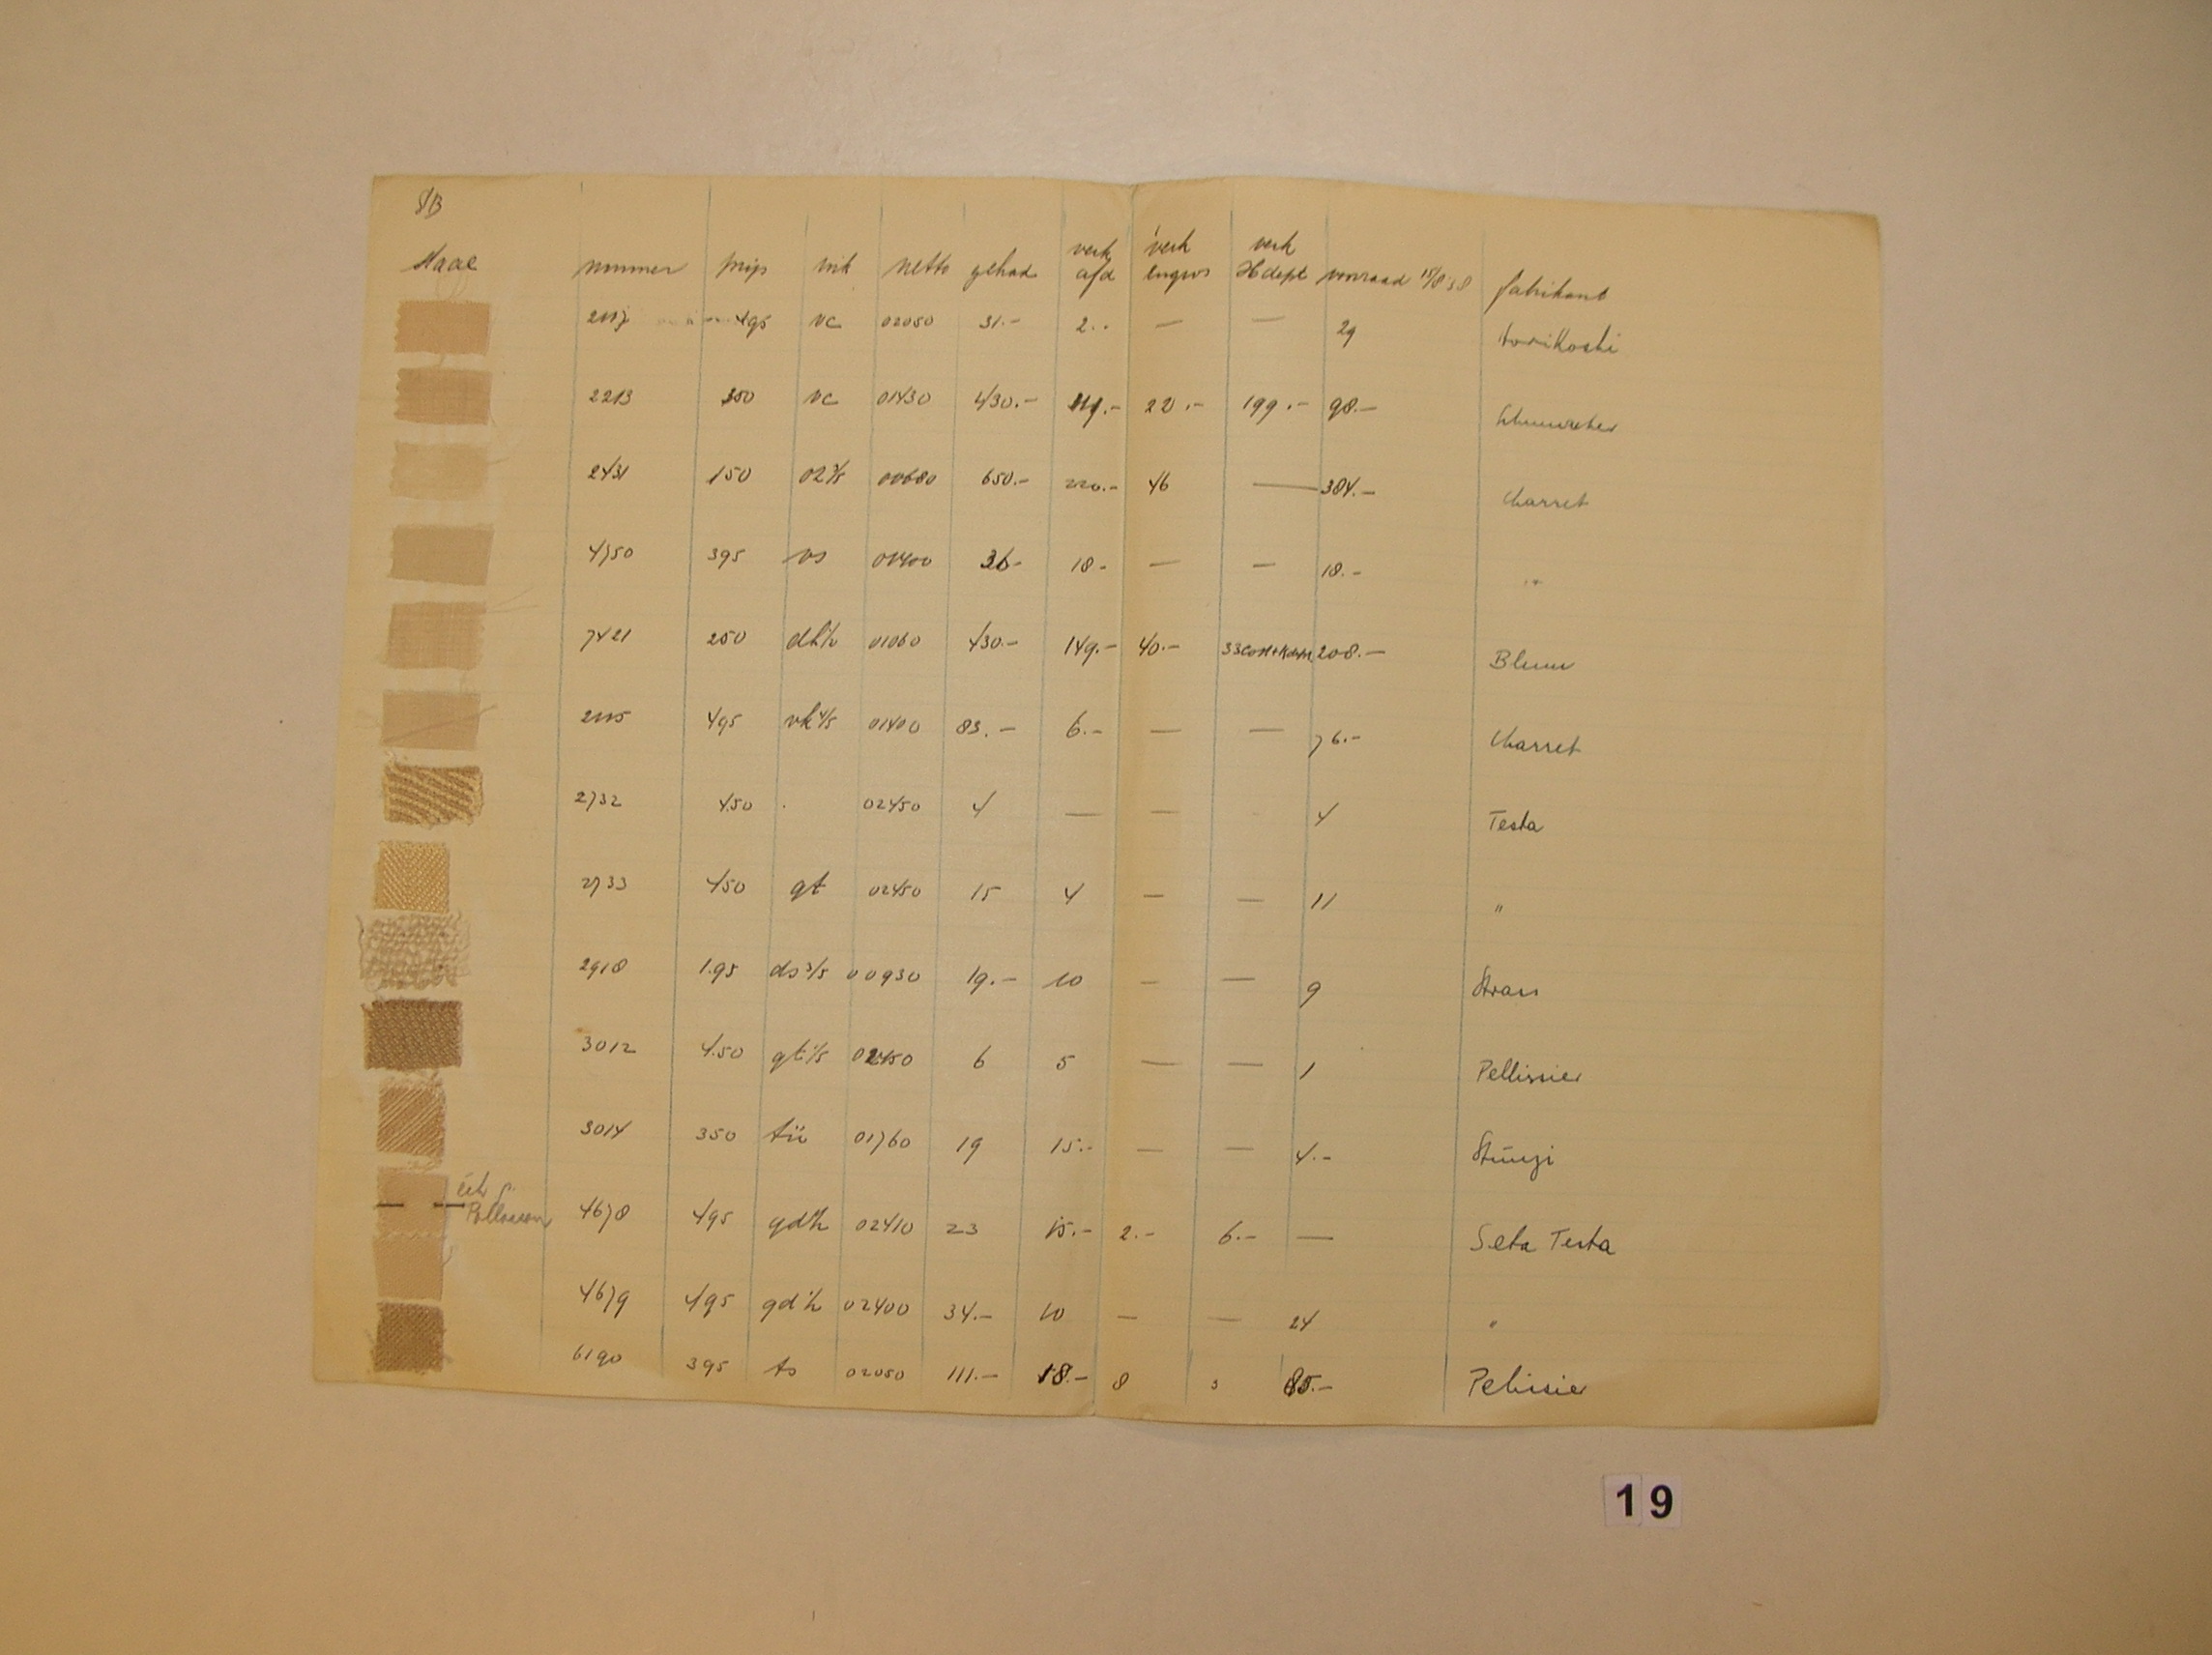 Staal nummer prijs ink netto gehad verk afd verk engros verk Hdept voorraad 15/8 38 fabrikant
495 vc 02050 31.- 2.. — — 29 HoriKoshi
2213 350 vc 01430 430.- 22.- 199.- 98.-
2431 150 00680 650.- 220.- 46 — 384.- Charret
4750 395 vs 01400 36- 18- — — 18.- "
7421 250 01060 430.- 149.- 40.- 208.- Blum
495 vk 4/5 01400 83.- 6.- — — 76.- Charret
2732 450 02450 4 — — 4 Testa
2733 450 gt 02450 15 4 — — 11 "
2918 1.95 ds 3/5 00930 19.- 10 — — 9
3012 4.50 gt 1/5 02450 6 5 — — 1 Pellissier
3014 350 tü 01760 19 15.- — — 4.- Stünzi
4678 495 02410 23 15.- 2.- 6.- — Seta Testa
4679 495 02400 34.- 10 — — 24 "
6190 395 ts 02050 111.- 18.- 8 85.- Pelissier
19